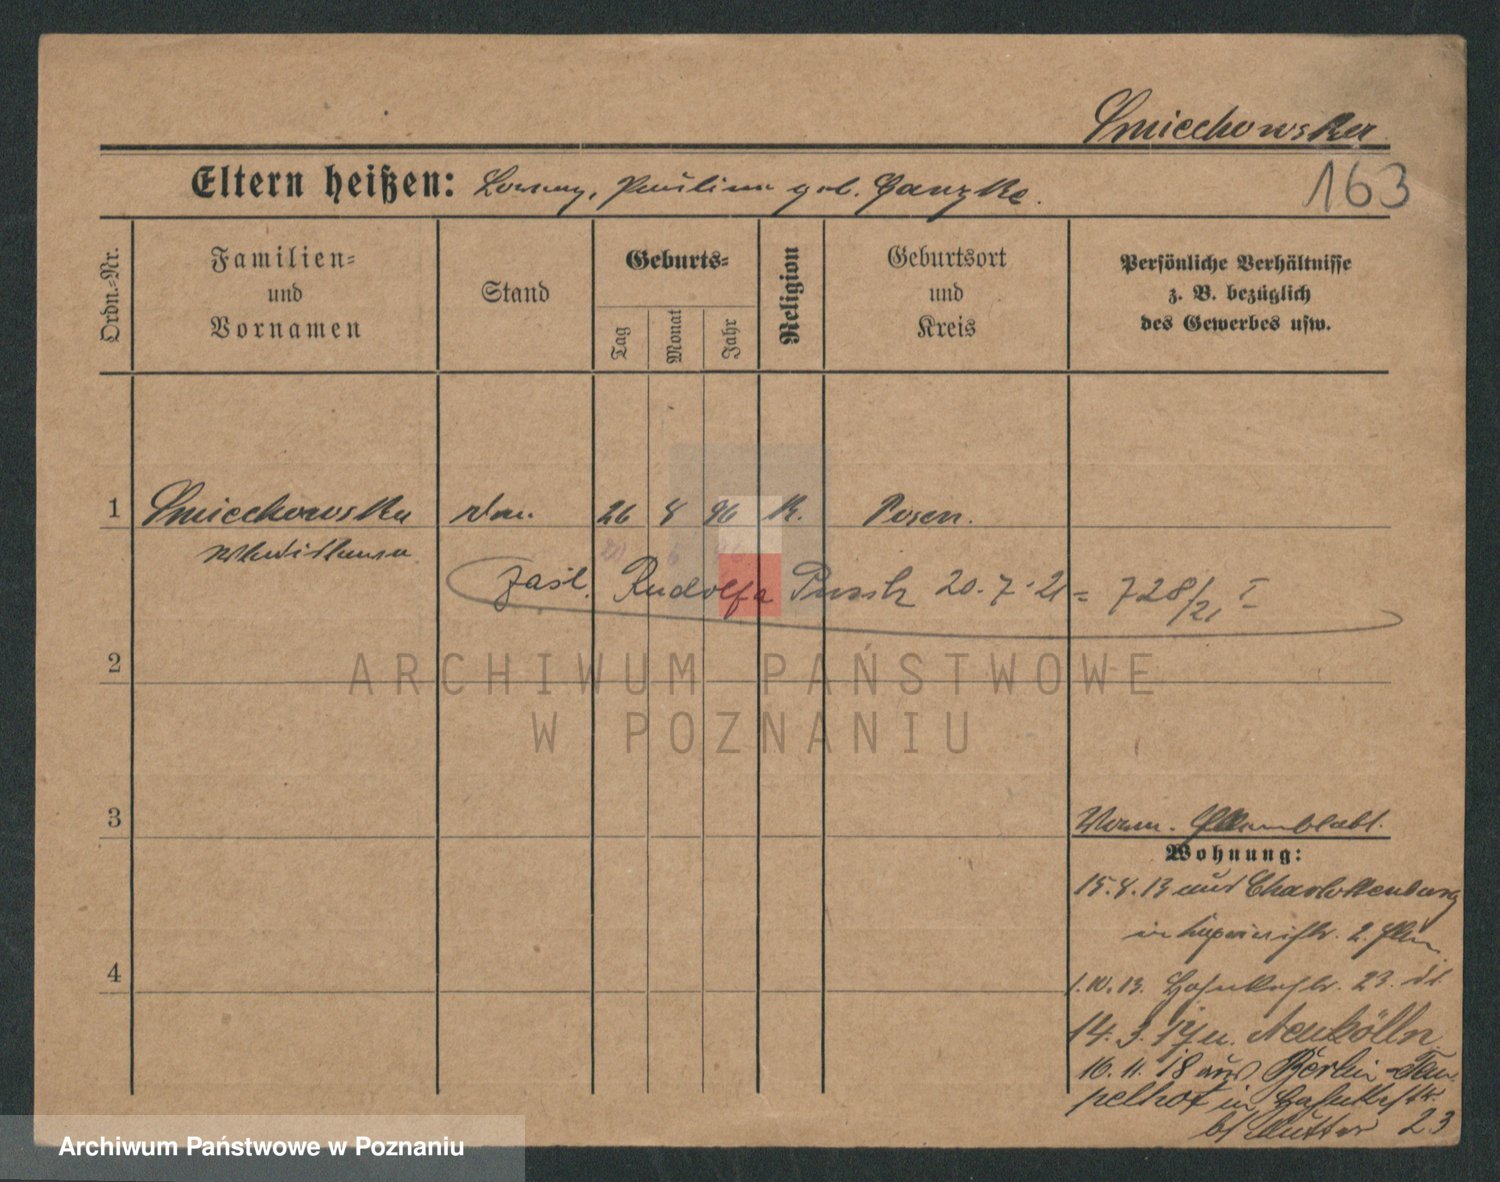 Smiechowska
Eltern heißen: Lorenz, Paulina geb. Ganzke.
163
Ordn.-Nr.
Familien-
und
Vornamen
Stand
Geburts-
Tag
Monat
Jahr
Religion
Geburtsort
und
Kreis
Persönliche Verhältnisse
z. B. bezüglich
des Gewerbes usw.
1 Smiechowska 26 8 96 K. Posen.
zaśl. Rudolfa 20.7.21 = 728/21 I
2
ARCHIWUM PAŃSTWOWE
W POZNANIU
3
Wohnung:
15.8.13 aus Charlottenburg
in 2.
4
1.10.13. 23.
14.3.17 n. Neukölln
16.11.18 aus Berlin-Tem-
pelhof in
b/ Mutter 23
Archiwum Państwowe w Poznaniu